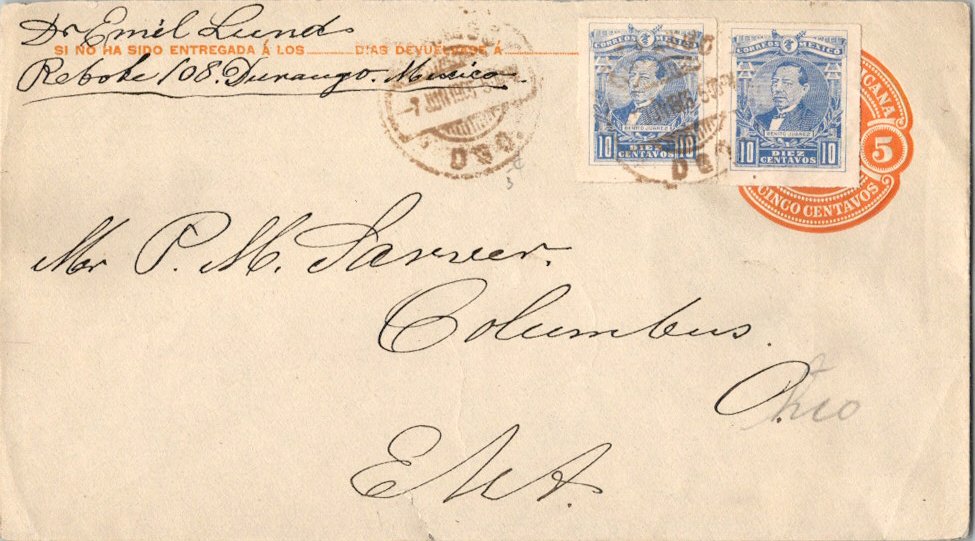 Dr Emil Lund
SI NO HA SIDO ENTREGADA Á LOS DIAS DEVUELVASE Á
108. Durango. Mexico.
CORREOS MEXICO
BENITO JUAREZ
10 DIEZ CENTAVOS 10
CORREOS MEXICO
BENITO JUAREZ
10 DIEZ CENTAVOS 10
ICANA
5
CINCO CENTAVOS
DGO
DGO
Mr P. M.
Columbus.
O.hio